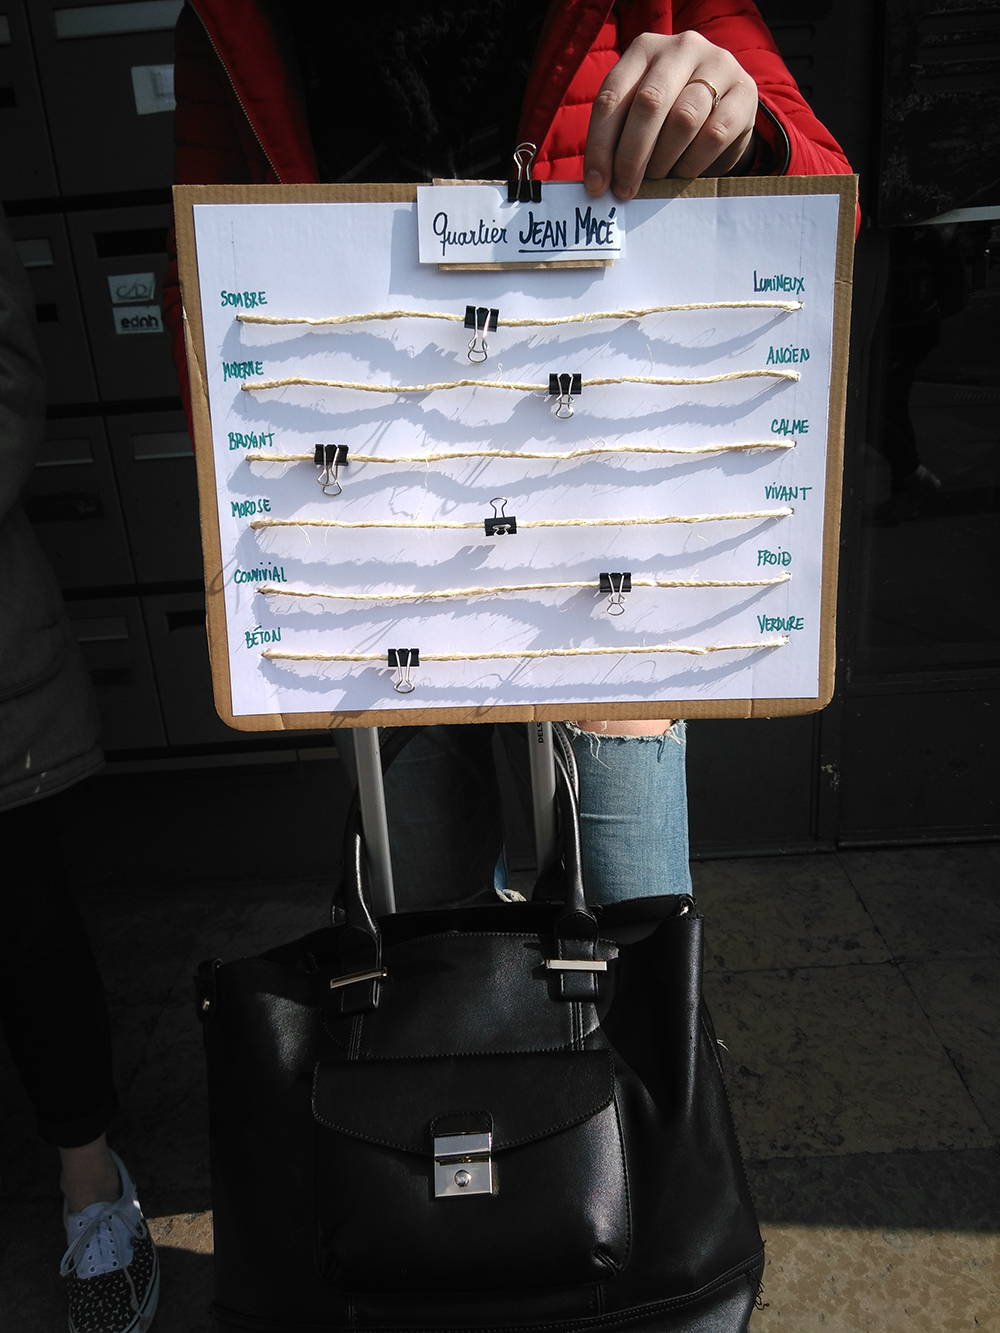 Quartier JEAN MACÉ
SOMBRE LUMINEUX
MODERNE ANCIEN
BRUYANT CALME
MOROSE VIVANT
CONVIVIAL FROID
BÉTON VERDURE
C/D/
ednh
DELS